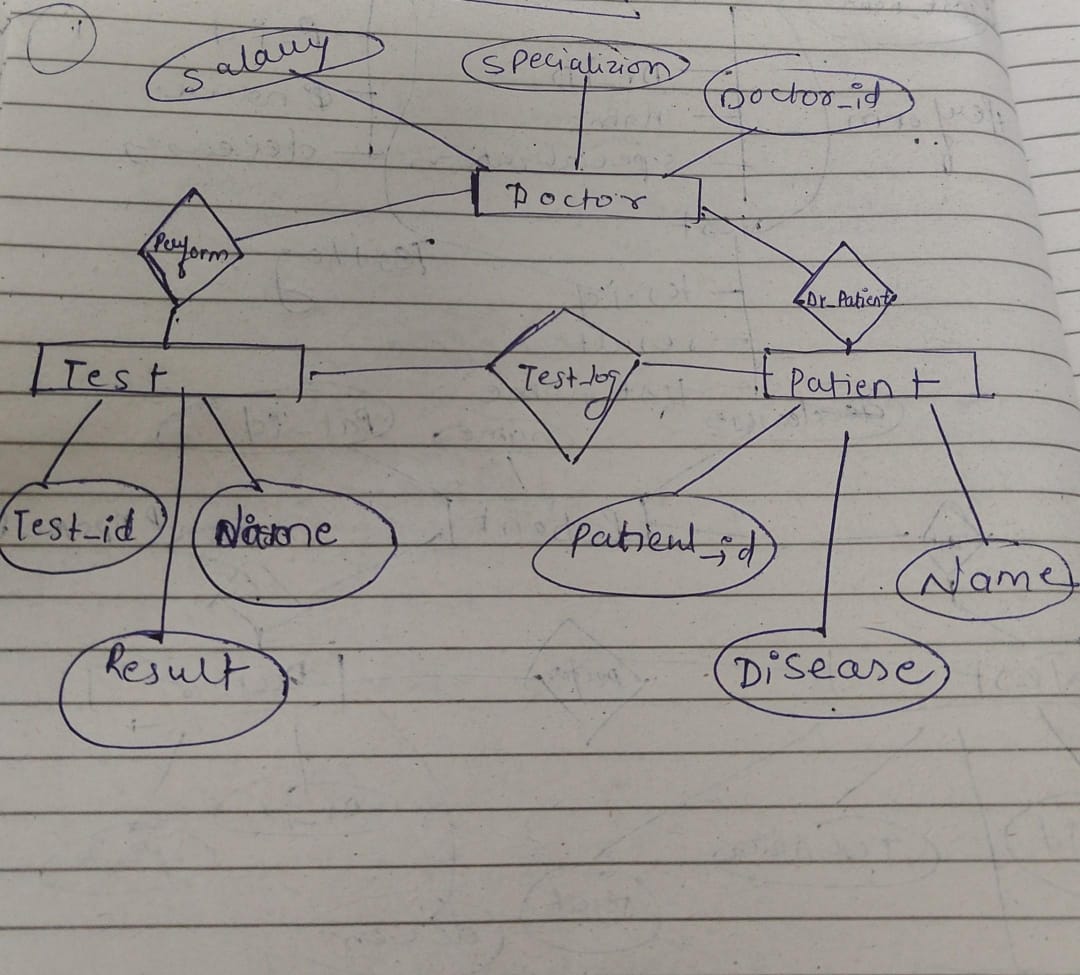 Salary
Specializion
Doctor_id
Doctor
Perform
Dr_Patient
Test
Test_log
Patient
Test_id
Name
Patient_id
Name
Result
Disease